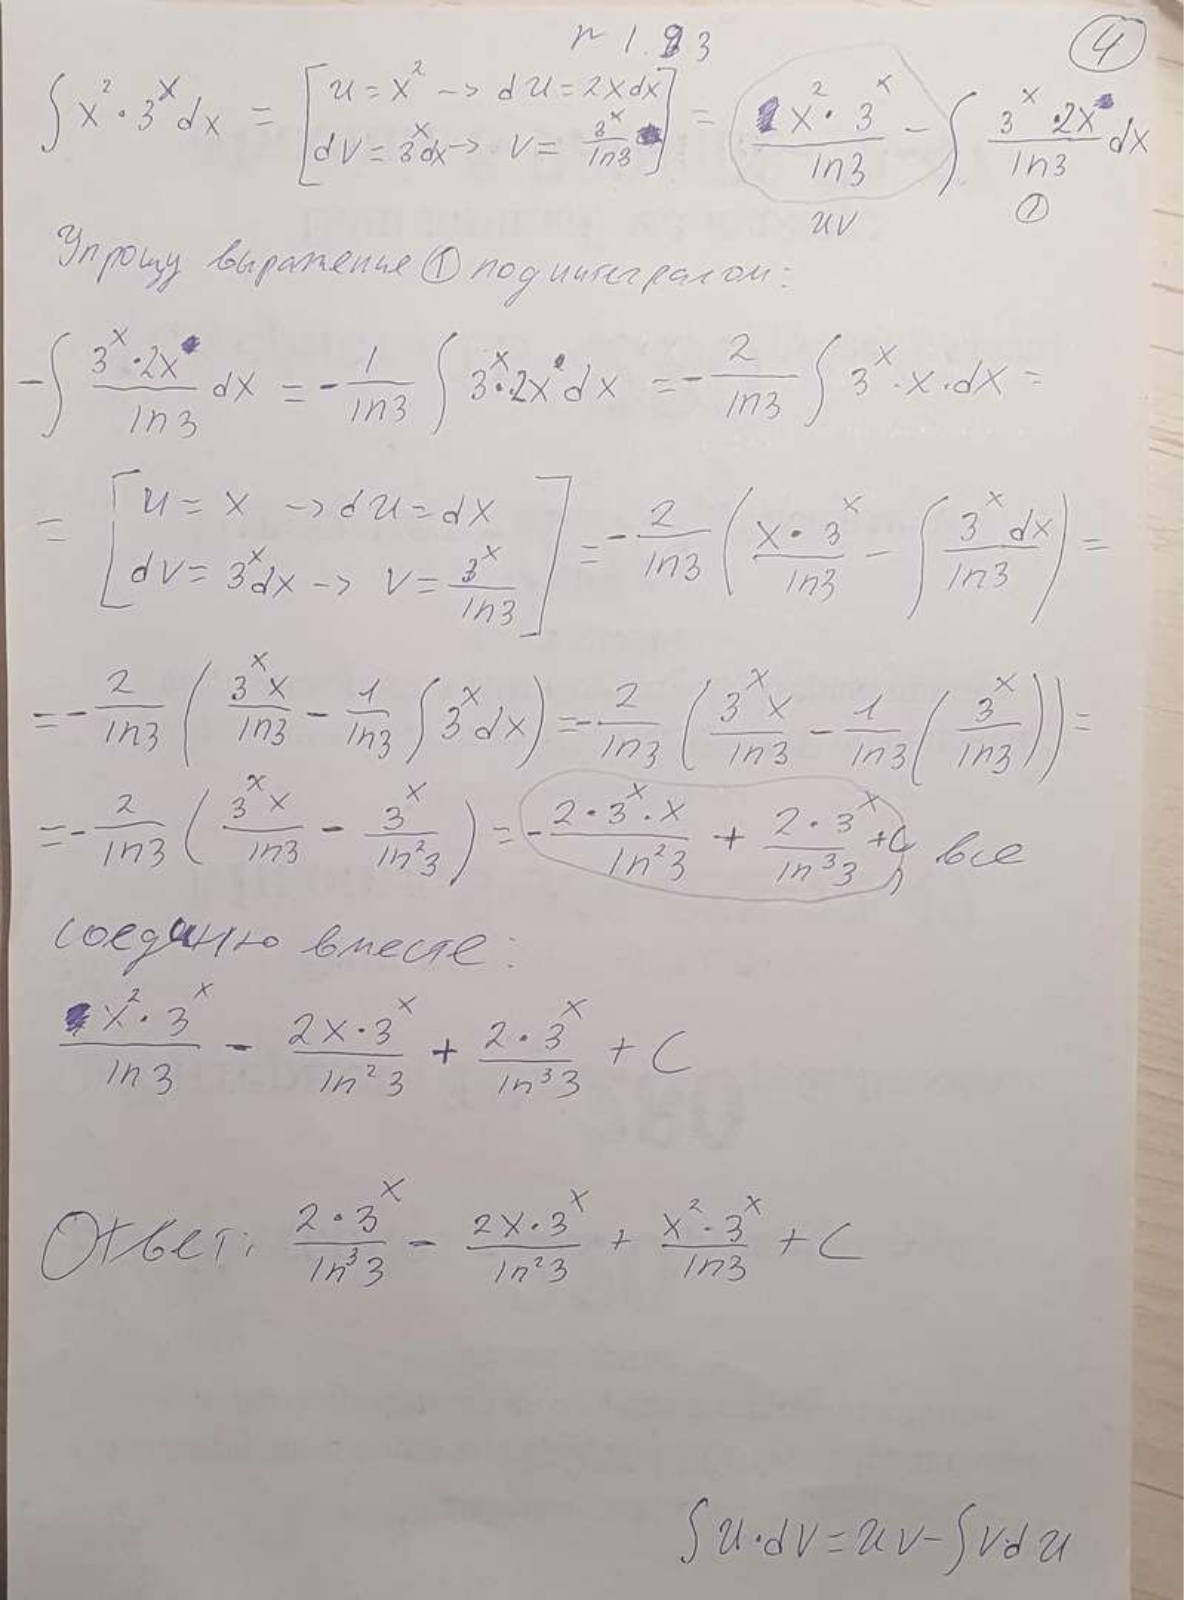 ④
№ 1.83
∫ x² · 3ˣ dx = [ u = x² → du = 2x dx; dv = 3ˣ dx → v = 3ˣ/ln3 ] = x² · 3ˣ/ln3 − ∫ 3ˣ · 2x/ln3 dx
uv ①
Упрощу выражение ① под интегралом:
−∫ 3ˣ · 2x/ln3 dx = − 1/ln3 ∫ 3ˣ · 2x dx = − 2/ln3 ∫ 3ˣ · x · dx =
= [ u = x → du = dx; dv = 3ˣ dx → v = 3ˣ/ln3 ] = − 2/ln3 ( x · 3ˣ/ln3 − ∫ 3ˣ dx/ln3 ) =
= − 2/ln3 ( 3ˣ x/ln3 − 1/ln3 ∫ 3ˣ dx ) = − 2/ln3 ( 3ˣ x/ln3 − 1/ln3 ( 3ˣ/ln3 ) ) =
= − 2/ln3 ( 3ˣ x/ln3 − 3ˣ/ln²3 ) = − 2 · 3ˣ · x/ln²3 + 2 · 3ˣ/ln³3 + C, все
соединю вместе:
x² · 3ˣ/ln3 − 2x · 3ˣ/ln²3 + 2 · 3ˣ/ln³3 + C
Ответ: 2 · 3ˣ/ln³3 − 2x · 3ˣ/ln²3 + x² · 3ˣ/ln3 + C
∫ u · dv = uv − ∫ v du